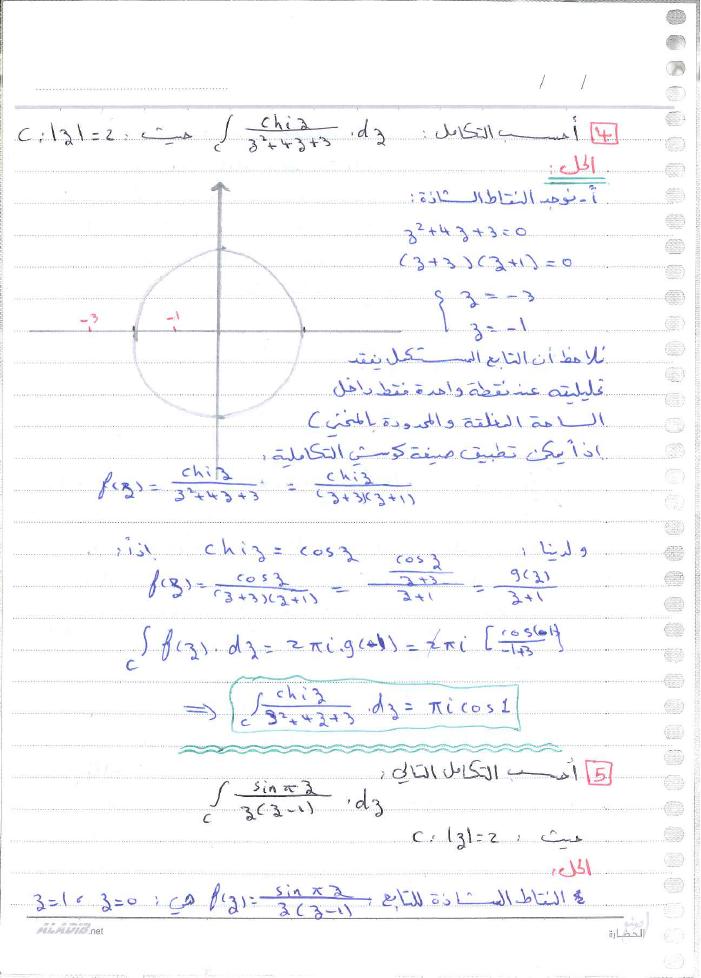 / /
4 أحسب التكامل: ∫_C chiz/(z²+4z+3) · dz حيث: C: |z|=2
الحل:
أ- نوجد النقاط الشاذة:
z²+4z+3=0
(z+3)(z+1)=0
{ z = -3
z = -1
-3 -1
نلاحظ أن التابع المستكمل يفقد
تحليليته عند نقطة واحدة فقط داخل
الساحة المغلقة والمحدودة بالمنحني C
إذاً يمكن تطبيق صيغة كوشي التكاملية:
f(z) = chiz/(z²+4z+3) = chiz/((z+3)(z+1))
ولدينا: chiz = cosz إذاً:
f(z) = cosz/((z+3)(z+1)) = (cosz/(z+3))/(z+1) = g(z)/(z+1)
∫_C f(z) · dz = 2πi · g(-1) = 2πi [cos(-1)/(-1+3)]
⟹ ∫_C chiz/(z²+4z+3) · dz = πi cos1
5 أحسب التكامل التالي:
∫_C sinπz/(z(z-1)) · dz
حيث: C: |z|=2
الحل:
النقاط الشاذة للتابع f(z) = sinπz/(z(z-1)) هي: z=0 ، z=1
ALADIB.net
الحضارة